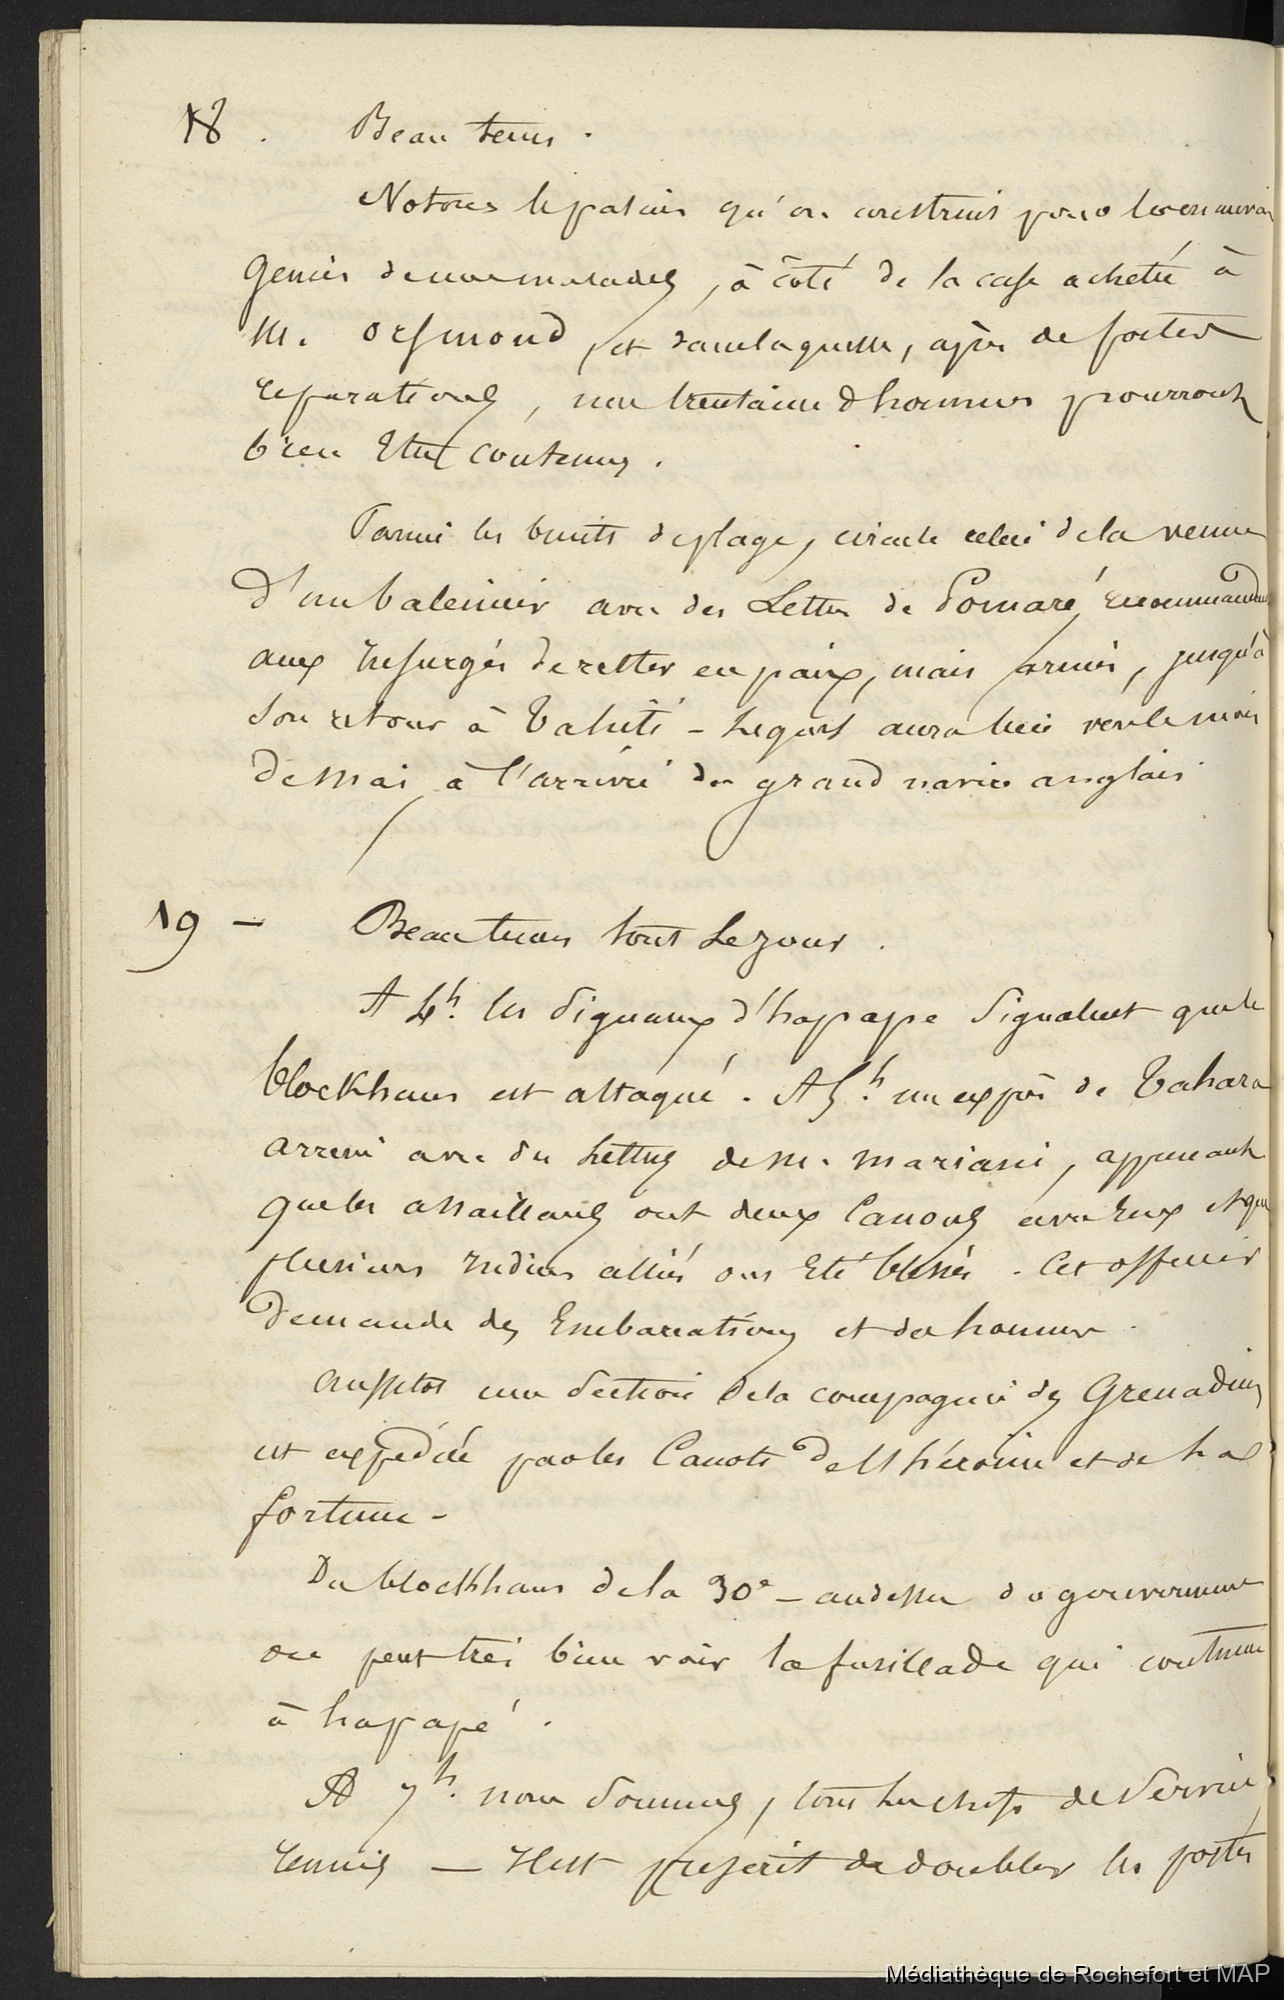 18. Beau tems.
Notons le palais qu'on construit pour les
de nos malades, à côté de la case acheté à
M. Orsmond, et dans laquelle, après de fortes
réparations, une trentaine d'hommes pourront
bien Etre contenus.
Parmi les bruits de plage, circule celui de la venue
D'un baleinier avec des Lettres de Pomaré, recommandant
aux Insurgés de rester en paix, mais armés, jusqu'à
Son retour à Tahiti - Lequel aura lieu vers le mois
De Mai à l'arrivée du grand navire anglais
19 - Beau tems tout Le jour.
A 4h. les Signaux d'hapape Signalent que le
blockhaus est attaqué. A 5.h un exprès de Tahara
arrive avec des Lettres de M. Mariani, apprenant
que les assaillants ont deux Canons avec Eux et que
plusieurs Indiens alliés ont Eté blessés. Cet officier
Demande des Embarcations et des hommes.
Aussitôt une Section de la compagnie des Grenadiers
est expédiée par les Canots De l'héroine et de La
fortune -
Du blockhaus de la 30e - audessus du gouvernement
on peut très bien voir la fusillade qui continue
à hapapé.
A 7h. nous Sommes, tous les chefs de Service,
réunis — Il est prescrit de doubler les postes
Médiathèque de Rochefort et MAP